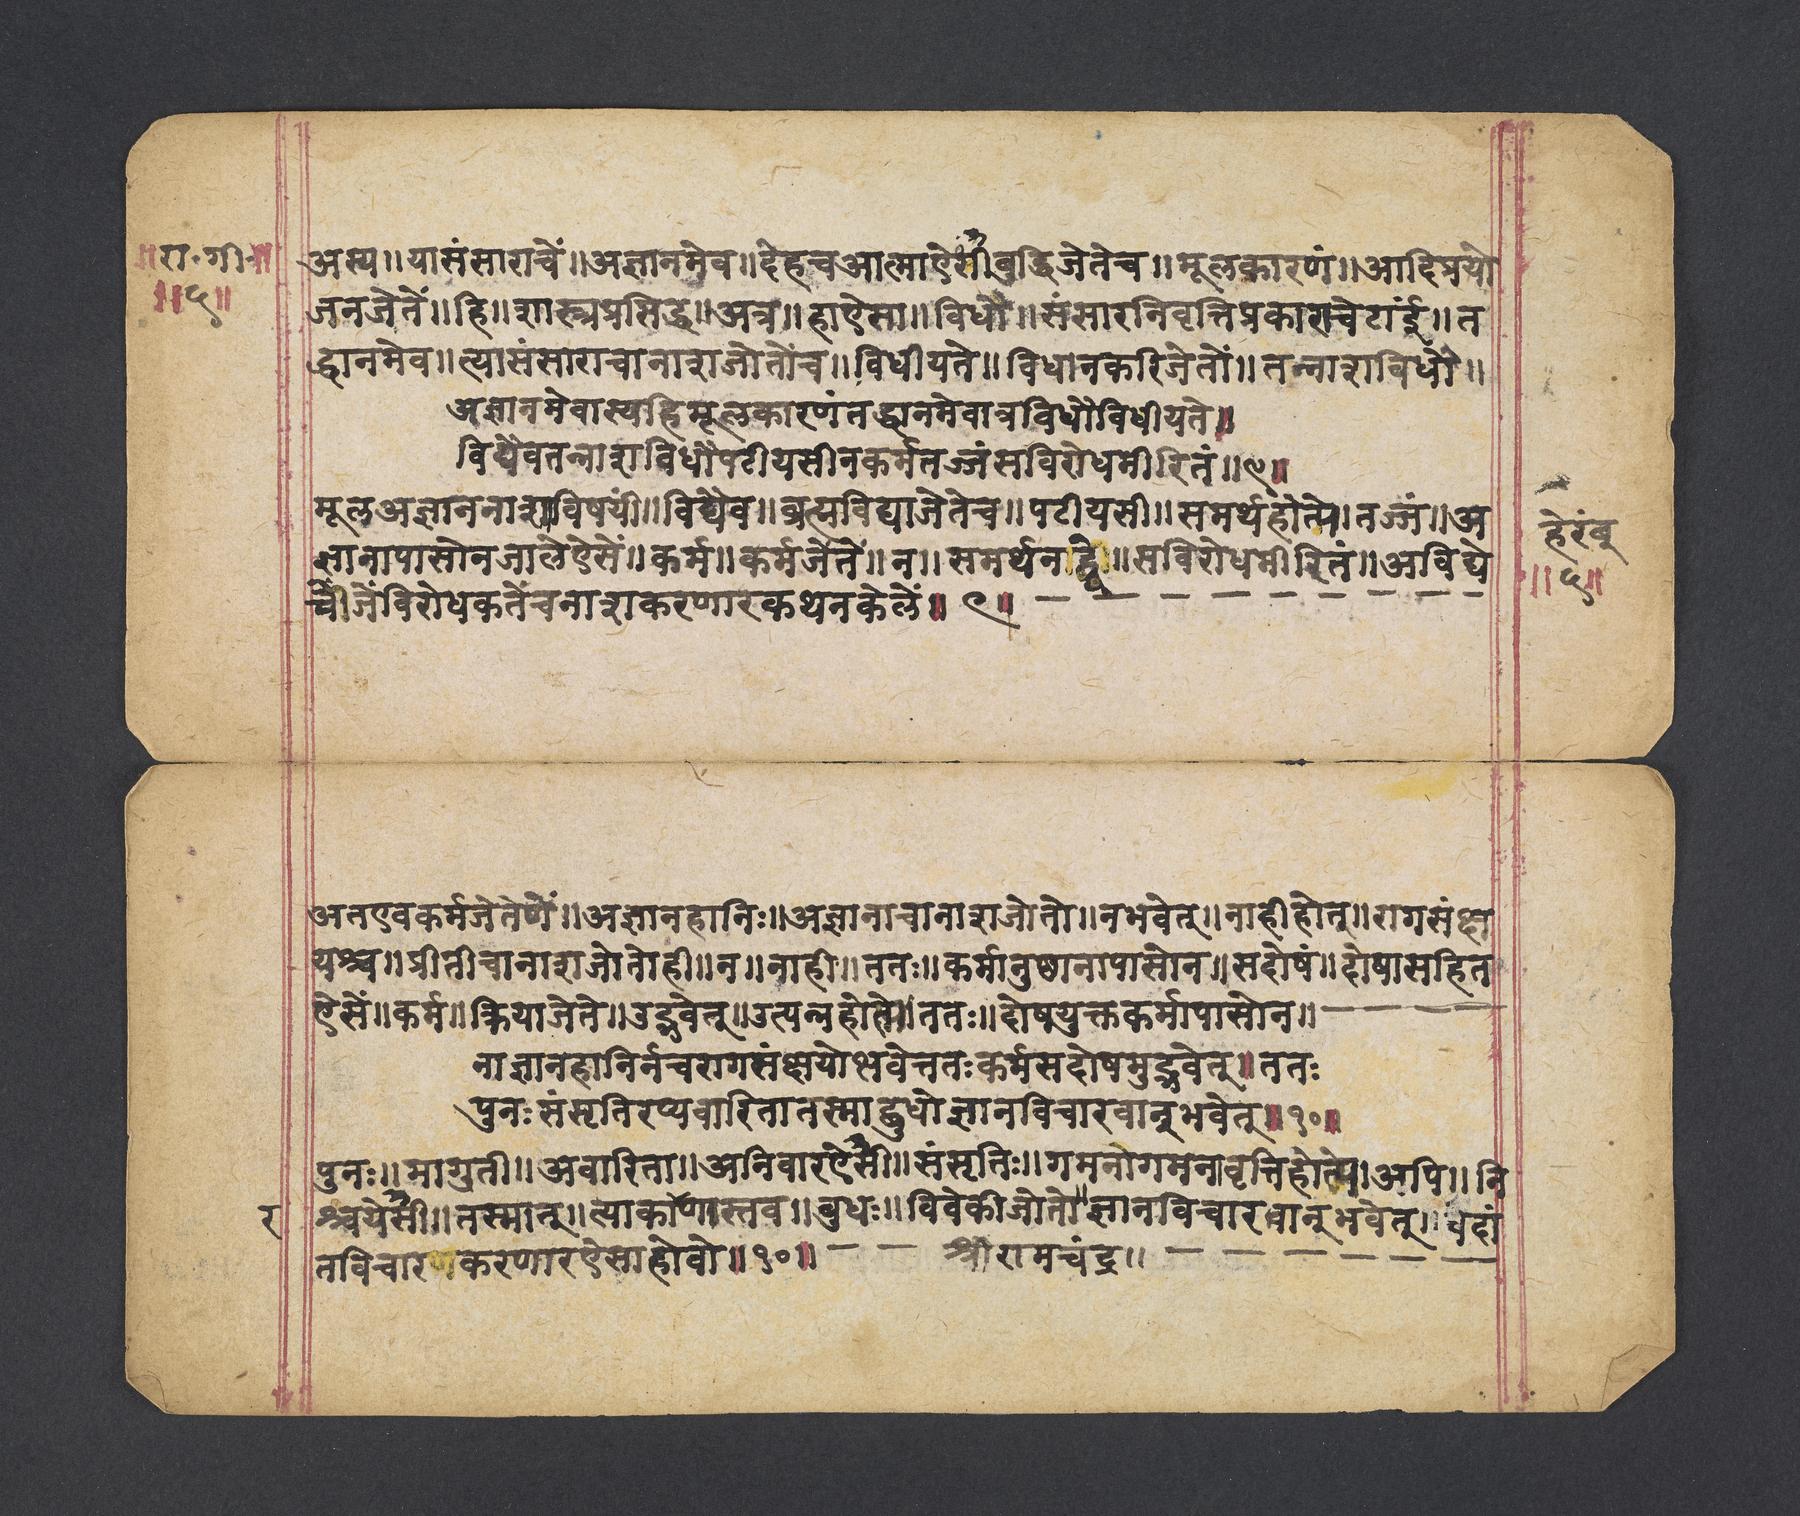 ॥रा॰गी॰॥
॥५॥
अस्य॥यासंसाराचें॥अज्ञानमेव॥देहचआत्माऐसीबुद्धिजेतेच॥मूलकारणं॥आदिप्रयो
जनजेतें॥हि॥शास्त्रप्रसिद्ध॥अत्र॥हाऐसा॥विधौ॥संसारनिवृत्तिप्रकाराचेठांईं॥त
द्धानमेव॥त्यासंसाराचानाशजोतोंच॥विधीयते॥विधानकरिजेतों॥तन्नाशविधौ॥
अज्ञानमेवास्यहिमूलकारणंतद्धानमेवात्रविधौविधीयते॥
विद्यैवतन्नाशविधौपटीयसीनकर्मतज्जंसविरोधमीरितं॥९॥
मूलअज्ञाननाशविषयीं॥विद्यैव॥ब्रह्मविद्याजेतेच॥पटीयसी॥समर्थहोत्ये।तज्जं॥अ
ज्ञानापासोनजालेऐसें॥कर्म॥कर्मजेतें॥न॥समर्थनव्हे॥सविरोधमीरितं॥अविद्ये
चीजेंविरोधकतेंचनाशकरणारकथनकेलें॥९॥
हेरंबु
॥५॥
अतएवकर्मजेतेणें॥अज्ञानहानिः॥अज्ञानाचानाशजोतो॥नभवेत्॥नाहीहोत्॥रागसंक्ष
यश्च॥प्रीतीचानाशजोतोही॥न॥नाही॥ततः॥कर्मानुष्ठानापासोन॥सदोषं॥दोषासहित
ऐसें॥कर्म॥क्रियाजेते॥उद्भवेत्॥उत्पन्नहोत्ये॥ततः॥दोषयुक्तकर्मापासोन॥
नाज्ञानहानिर्नचरागसंक्षयोभवेत्ततःकर्मसदोषमुद्भवेत्॥ततः
पुनःसंसृतिरप्यवारितातस्माद्बुधोज्ञानविचारवान्भवेत्॥१०॥
पुनः॥मागुती॥अवारिता॥अनिवारऐसी॥संसृतिः॥गमनागमनावृत्तिहोत्ये।अपि॥नि
श्चयेसी॥तस्मात्॥त्याकारणास्तव॥बुधः॥विवेकीजोतो॥ज्ञानविचारवान्भवेत्॥वेदां
र
तविचारकरणारऐसाहोवो॥१०॥ श्रीरामचंद्र॥